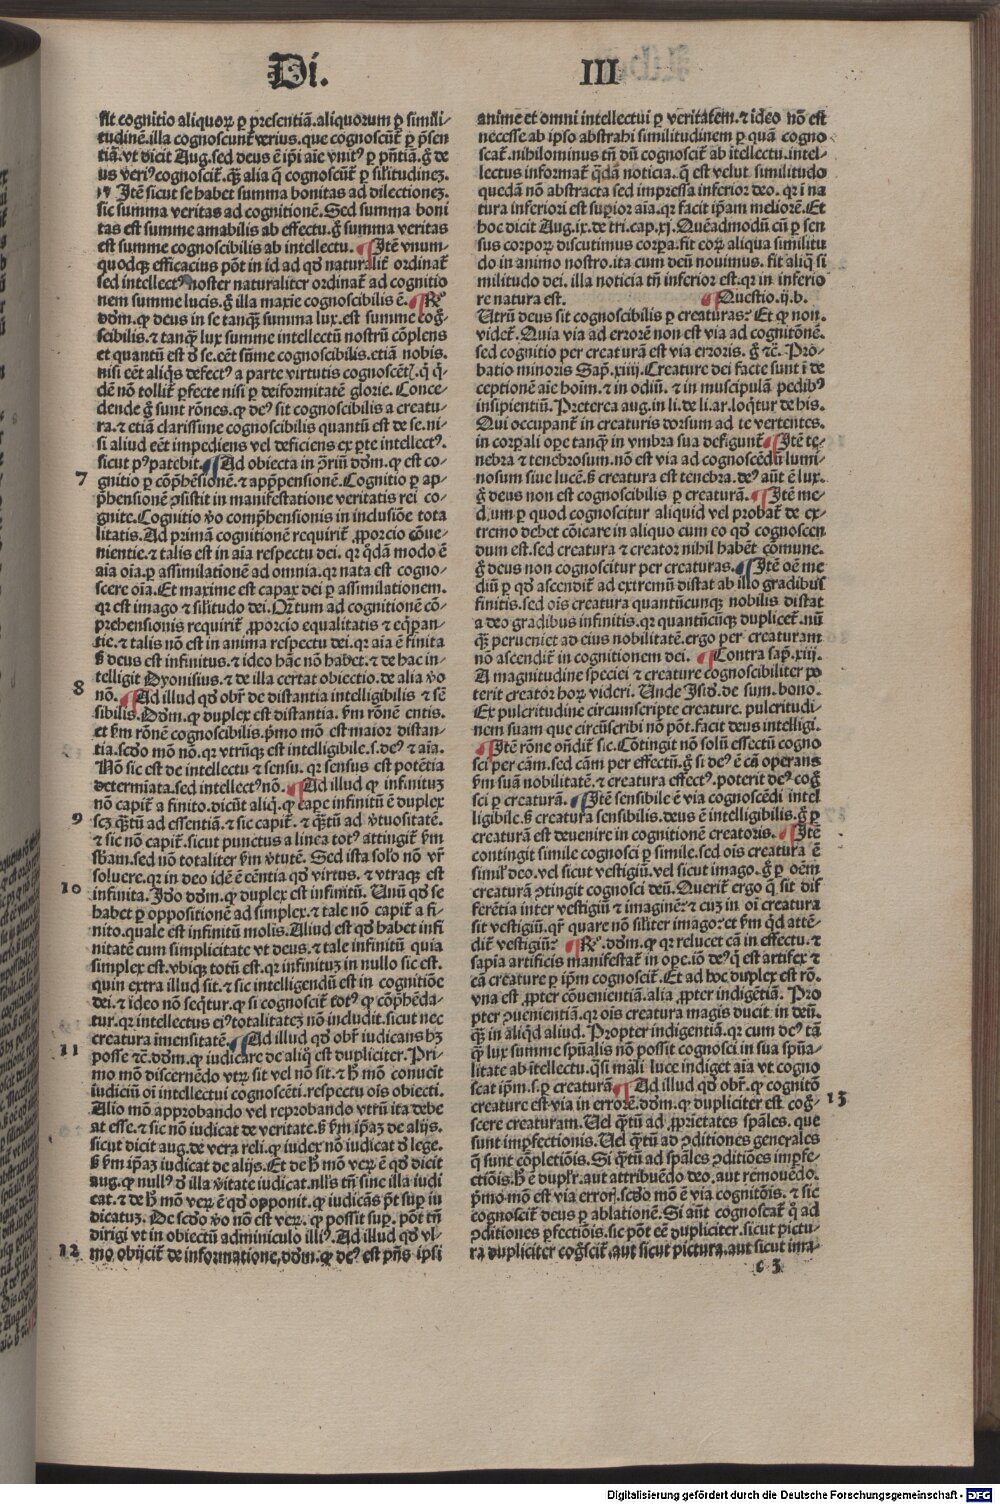 Di.
III
sit cognitio aliquoꝝ ꝑ presentiã.aliquorum ꝑ simili-
tudinẽ.illa cognoscunt᷑ verius.que cognoscũt᷑ ꝑ p̃sen
tiã.vt dicit Aug.sed deus ẽ ip̃i aĩe vnitꝰ ꝑ p̃ntiã.g̃ de
us veriꝰ cognoscit᷑.q̃ꝫ alia q̃ cognoscũt᷑ ꝑ silitudineꝫ.
Itẽ sicut se habet summa bonitas ad dilectioneꝫ.
sic summa veritas ad cognitionẽ.Sed summa boni
tas est summe amabilis ab effectu.g̃ summa veritas
est summe cognoscibilis ab intellectu. ¶Itẽ vnum-
quodqꝫ efficacius põt in id ad qd̃ naturalit᷑ ordinat᷑
sed intellectꝰ noster naturaliter ordinat᷑ ad cognitio
nem summe lucis.g̃ illa maxie cognoscibilis ẽ. ¶Rº
dd̃m.ꝙ deus in se tanqꝫ summa lux.est summe cog̃-
scibilis.⁊ tanqꝫ lux summe intellectũ nostrũ cõplens
et quantũ est d̃ se.eẽt sũme cognoscibilis.etiã nobis.
nisi eẽt aliqs defectꝰ a parte virtutis cognoscẽt̃.q̃ q̃-
dẽ nõ tollit᷑ ꝑfecte nisi ꝑ deiformitatẽ glorie. Conce-
dende g̃ sunt rõnes.ꝙ deꝰ sit cognoscibilis a creatu-
ra.⁊ etiã clarissime cognoscibilis quantũ est de se.ni-
si aliud eẽt impediens vel deficiens ex ꝑte intellectꝰ.
sicut pꝰ patebit. ¶Ad obiecta in ꝯ̃riũ dd̃m.ꝙ est co-
7
gnitio ꝑ cõp̃hẽsionẽ.⁊ app̃hensionẽ.Cognitio ꝑ ap-
p̃hensionẽ ꝯsistit in manifestatione veritatis rei co-
gnite.Cognitio v̾o comp̃hensionis in inclusiõe tota
litatis.Ad primã cognitionẽ requirit᷑ ꝓporcio cõue-
nientie.⁊ talis est in aĩa respectu dei. qꝛ q̃dã modo ẽ
aĩa oĩa.ꝑ assimilationẽ ad omnia.qꝛ nata est cogno-
scere oĩa.Et maxime est capax dei ꝑ assimilationem.
qꝛ est imago ⁊ silitudo dei.Qr̃tum ad cognitionẽ cõ-
prehensionis requirit᷑ ꝓporcio equalitatis ⁊ eq̃ꝑan-
tie.⁊ talis nõ est in anima respectu dei.qꝛ aĩa ẽ finita
ẞ deus est infinitus.⁊ ideo hãc nõ habet.⁊ de hac in-
telligit Dyonisius.⁊ de illa certat obiectio.de alia v̾o
8
nõ. ¶Ad illud qd̃ obr̃ de distantia intelligibilis ⁊ sẽ
sibilis.Dd̃m.ꝙ duplex est distantia. ẞm rõnẽ entis.
et ẞm rõnẽ cognoscibilis.p̾mo mõ est maior distan-
tia.scd̾o mõ nõ.qꝛ vtrũqꝫ est intelligibile.s.deꝰ ⁊ aĩa.
Nõ sic est de intellectu ⁊ sensu. qꝛ sensus est potẽtia
determiata.sed intellectꝰ nõ. ¶Ad illud ꝙ infinituꝫ
nõ capit᷑ a finito.dicũt aliq̃.ꝙ cape infinitũ ẽ duplex
9
scꝫ q̃ꝫtũ ad essentiã.⁊ sic capit᷑. ⁊ q̃ꝫtũ ad v̾tuositatẽ.
⁊ sic nõ capit᷑.sicut punctus a linea totꝰ attingit᷑ ẞm
sb̃am.sed nõ totaliter ẞm v̾tutẽ. Sed ista solo nõ vr̃
soluere.qꝛ in deo idẽ ẽ cẽntia qd̃ virtus. ⁊ vtraqꝫ est
10
infinita. Id̾o dd̃m.ꝙ duplex est infinitũ. Unũ qd̃ se
habet ꝑ oppositionẽ ad simplex.⁊ tale nõ capit᷑ a fi-
nito.quale est infinitũ molis.Aliud est qd̃ habet infi
nitatẽ cum simplicitate vt deus.⁊ tale infinitũ quia
simplex est.vbiqꝫ totũ est.qꝛ infinituꝫ in nullo sic est.
quin extra illud sit.⁊ sic intelligendũ est in cognitiõe
dei.⁊ ideo nõ seqt̃ur.ꝙ si cognoscit᷑ totꝰ ꝙ cõp̃hẽda-
tur.qꝛ intellectus eiꝰ totalitateꝫ nõ includit.sicut nec
creatura imẽsitatẽ. ¶Ad illud qd̃ obr̃ iudicans hꝫ
11
posse ⁊c̃.dd̃m.ꝙ iudicare de aliq̃ est dupliciter. Pri-
mo mõ discernẽdo vtꝝ sit vel nõ sit.⁊ h̃ mõ conuẽit
iudiciũ oĩ intellectui cognoscẽti.respectu oĩs obiecti.
Alio mõ approbando vel reprobando vtrũ ita debe
at esse.⁊ sic nõ iudicat de veritate.ẞ ẞm ip̃aꝫ de alijs.
sicut dicit aug.de vera reli.ꝙ iudex nõ iudicat d̃ lege.
ẞ ẞm ip̃aꝫ iudicat de alijs.Et de h̃ mõ veꝝ ẽ qd̃ dicit
aug.ꝙ nullꝰ d̃ illa v̾itate iudicat.nlls tñ sine illa iudi
cat.⁊ de h̃ mõ veꝝ ẽ qd̃ opponit.ꝙ iudicãs p̃t sup̱ iu
dicatuꝫ. De scd̾o v̾o nõ est veꝝ. ꝙ possit sup̱. põt tñ
dirigi vt in obiectũ adminiculo illiꝰ. Ad illud qd̃ vl-
12
mo obijcit᷑ de informatione.dd̃m.ꝙ deꝰ est p̃ñs ipsi
anime et omni intellectui ꝑ veritatem.⁊ ideo nõ est
necesse ab ipso abstrahi similitudinem ꝑ quã cogno
scat᷑.nihilominus tñ dũ cognoscit᷑ ab ĩtellectu.intel-
lectus informat᷑ q̃dã noticia.q̃ est velut similitudo
quedã nõ abstracta sed impressa inferior deo.qꝛ ĩ na
tura inferiori est sup̱ior aĩa.qꝛ facit ip̃am meliorẽ.Et
hoc dicit Aug.ix.de tri.cap.xj. Quẽadmodũ cũ ꝑ sen
sus corpoꝝ discutimus corpa.fit coꝝ aliqua similitu
do in animo nostro.ita cum deũ nouimus. fit aliq̃ si
militudo dei. illa noticia tñ inferior est.qꝛ in inferio
re natura est. ¶Questio.ij.b.
Utrũ deus sit cognoscibilis ꝑ creaturas? Et ꝙ non.
videt᷑. Quia via ad errorẽ non est via ad cognitõnẽ.
sed cognitio per creaturã est via erroris. g̃ ⁊c̃. Pro-
batio minoris Sap̃.xiiij. Creature dei facte sunt ĩ de
ceptionẽ aĩe hoĩm.⁊ in odiũ. ⁊ in muscipulã pedibꝰ
insipientiũ.Preterea aug.in li.de li.ar.loqt̃ur de his.
Qui occupant᷑ in creaturis dorsum ad te vertentes.
in corꝑali oꝑe tanqꝫ in vmbra sua defigunt᷑. ¶Itẽ te-
nebra ⁊ tenebrosum.nõ est via ad cognoscẽdũ lumi-
nosum siue lucẽ.ẞ creatura est tenebra.deꝰ aũt ẽ lux.
g̃ deus non est cognoscibilis ꝑ creaturã. ¶Itẽ me-
dium ꝑ quod cognoscitur aliquid vel probat᷑ de ex-
tremo debet cõicare in aliquo cum eo qd̃ cognoscen
dum est.sed creatura ⁊ creator nihil habẽt cõmune.
g̃ deus non cognoscitur per creaturas. ¶Itẽ oẽ me
diũ ꝑ qd̃ ascendit᷑ ad extremũ distat ab illo gradibus
finitis.sed oĩs creatura quantũcunqꝫ nobilis distat
a deo gradibus infinitis.qꝛ quantũcũqꝫ duplicet᷑.nũ
qꝫ perueniet ad eius nobilitatẽ.ergo per creaturam
nõ ascendit᷑ in cognitionem dei. ¶Contra sap̃.xiij.
A magnitudine speciei ⁊ creature cognoscibiliter po
terit creator hoꝝ videri. Unde Isid̃.de sum.bono.
Ex pulcritudine circumscripte creature. pulcritudi-
nem suam que circũscribi nõ põt.facit deus intelligi.
¶Itẽ rõne oñdit᷑ sic.Cõtingit nõ solũ effectũ cogno
sci per cãm.sed cãm per effectũ.g̃ si deꝰ ẽ cã operans
ẞm suã nobilitatẽ.⁊ creatura effectꝰ.poterit deꝰ cog̃
sci ꝑ creaturã. ¶Itẽ sensibile ẽ via cognoscẽdi intel
ligibile.ẞ creatura sensibilis.deus ẽ intelligibilis.g̃ ꝑ
creaturã est deuenire in cognitionẽ creatoris. ¶Itẽ
contingit simile cognosci ꝑ simile.sed oĩs creatura ẽ
simil᷑ deo.vel sicut vestigiũ.vel sicut imago.g̃ ꝑ oẽm
creaturã ꝯtingit cognosci deũ.Querit᷑ ergo q̃ sit dif
ferẽtia inter vestigiũ ⁊ imaginẽ?⁊ cuꝫ in oĩ creatura
sit vestigiũ.qr̃ quare nõ siliter imago?et ẞm qd̃ attẽ-
dit᷑ vestigiũ? ¶Rº.dd̃m.ꝙ qꝛ relucet cã in effectu.⁊
sapĩa artificis manifestat᷑ in oꝑe.iõ deꝰ q̃ est artifex ⁊
cã creature ꝑ ip̃m cognoscit᷑.Et ad hoc duplex est rõ.
vna est ꝓpter cõuenientiã.alia ꝓpter indigẽtiã. Pro
pter ꝯuenientiã.qꝛ oĩs creatura magis ducit in deũ.
qꝫ in aliqd̃ aliud. Propter indigentiã.qꝛ cum deꝰ tã
qꝫ lux summe sp̃ualis nõ possit cognosci in sua sp̃ua-
litate ab ĩtellectu.q̃si mali luce indiget aĩa vt cogno
scat ip̃m.s.ꝑ creaturã. ¶Ad illud qd̃ obr̃.ꝙ cognitõ
creature est via in errorẽ.dd̃m.ꝙ dupliciter est cog̃-
13
scere creaturam.Uel q̃ꝫtũ ad ꝓprietates sp̃ales. que
sunt imꝑfectionis.Uel q̃ꝫtũ ad ꝯditiones generales
q̃ sunt cõpletiõis.Si q̃ꝫtũ ad sp̃ales ꝯditiões imꝑfe-
ctiõis.h̃ ẽ duplr̃.aut attribuẽdo deo.aut remouẽdo.
p̾mo mõ est via erroꝝ.scd̾o mõ ẽ via cognitõis. ⁊ sic
cognoscit᷑ deus ꝑ ablationẽ.Si aũt cognoscat᷑ q̃ ad
ꝯditiones ꝑfectiõis.sic põt eẽ dupliciter.sicut pictu-
ra dupliciter cog̃scit᷑.aut sicut pictura.aut sicut ima-
c 3
Digitalisierung gefördert durch die Deutsche Forschungsgemeinschaft - DFG